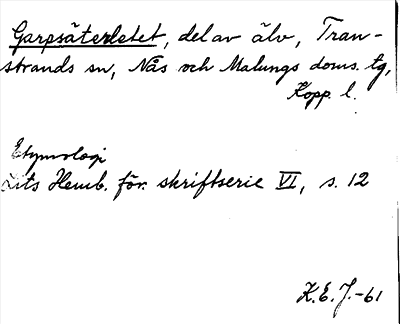 Garpsäterletet, del av älv, Tran-
strands sn, Nås och Malungs doms. tg,
Kopp. l.
Etymologi
Lits Hemb. för. skriftserie VI, s. 12
K.E.J.-61